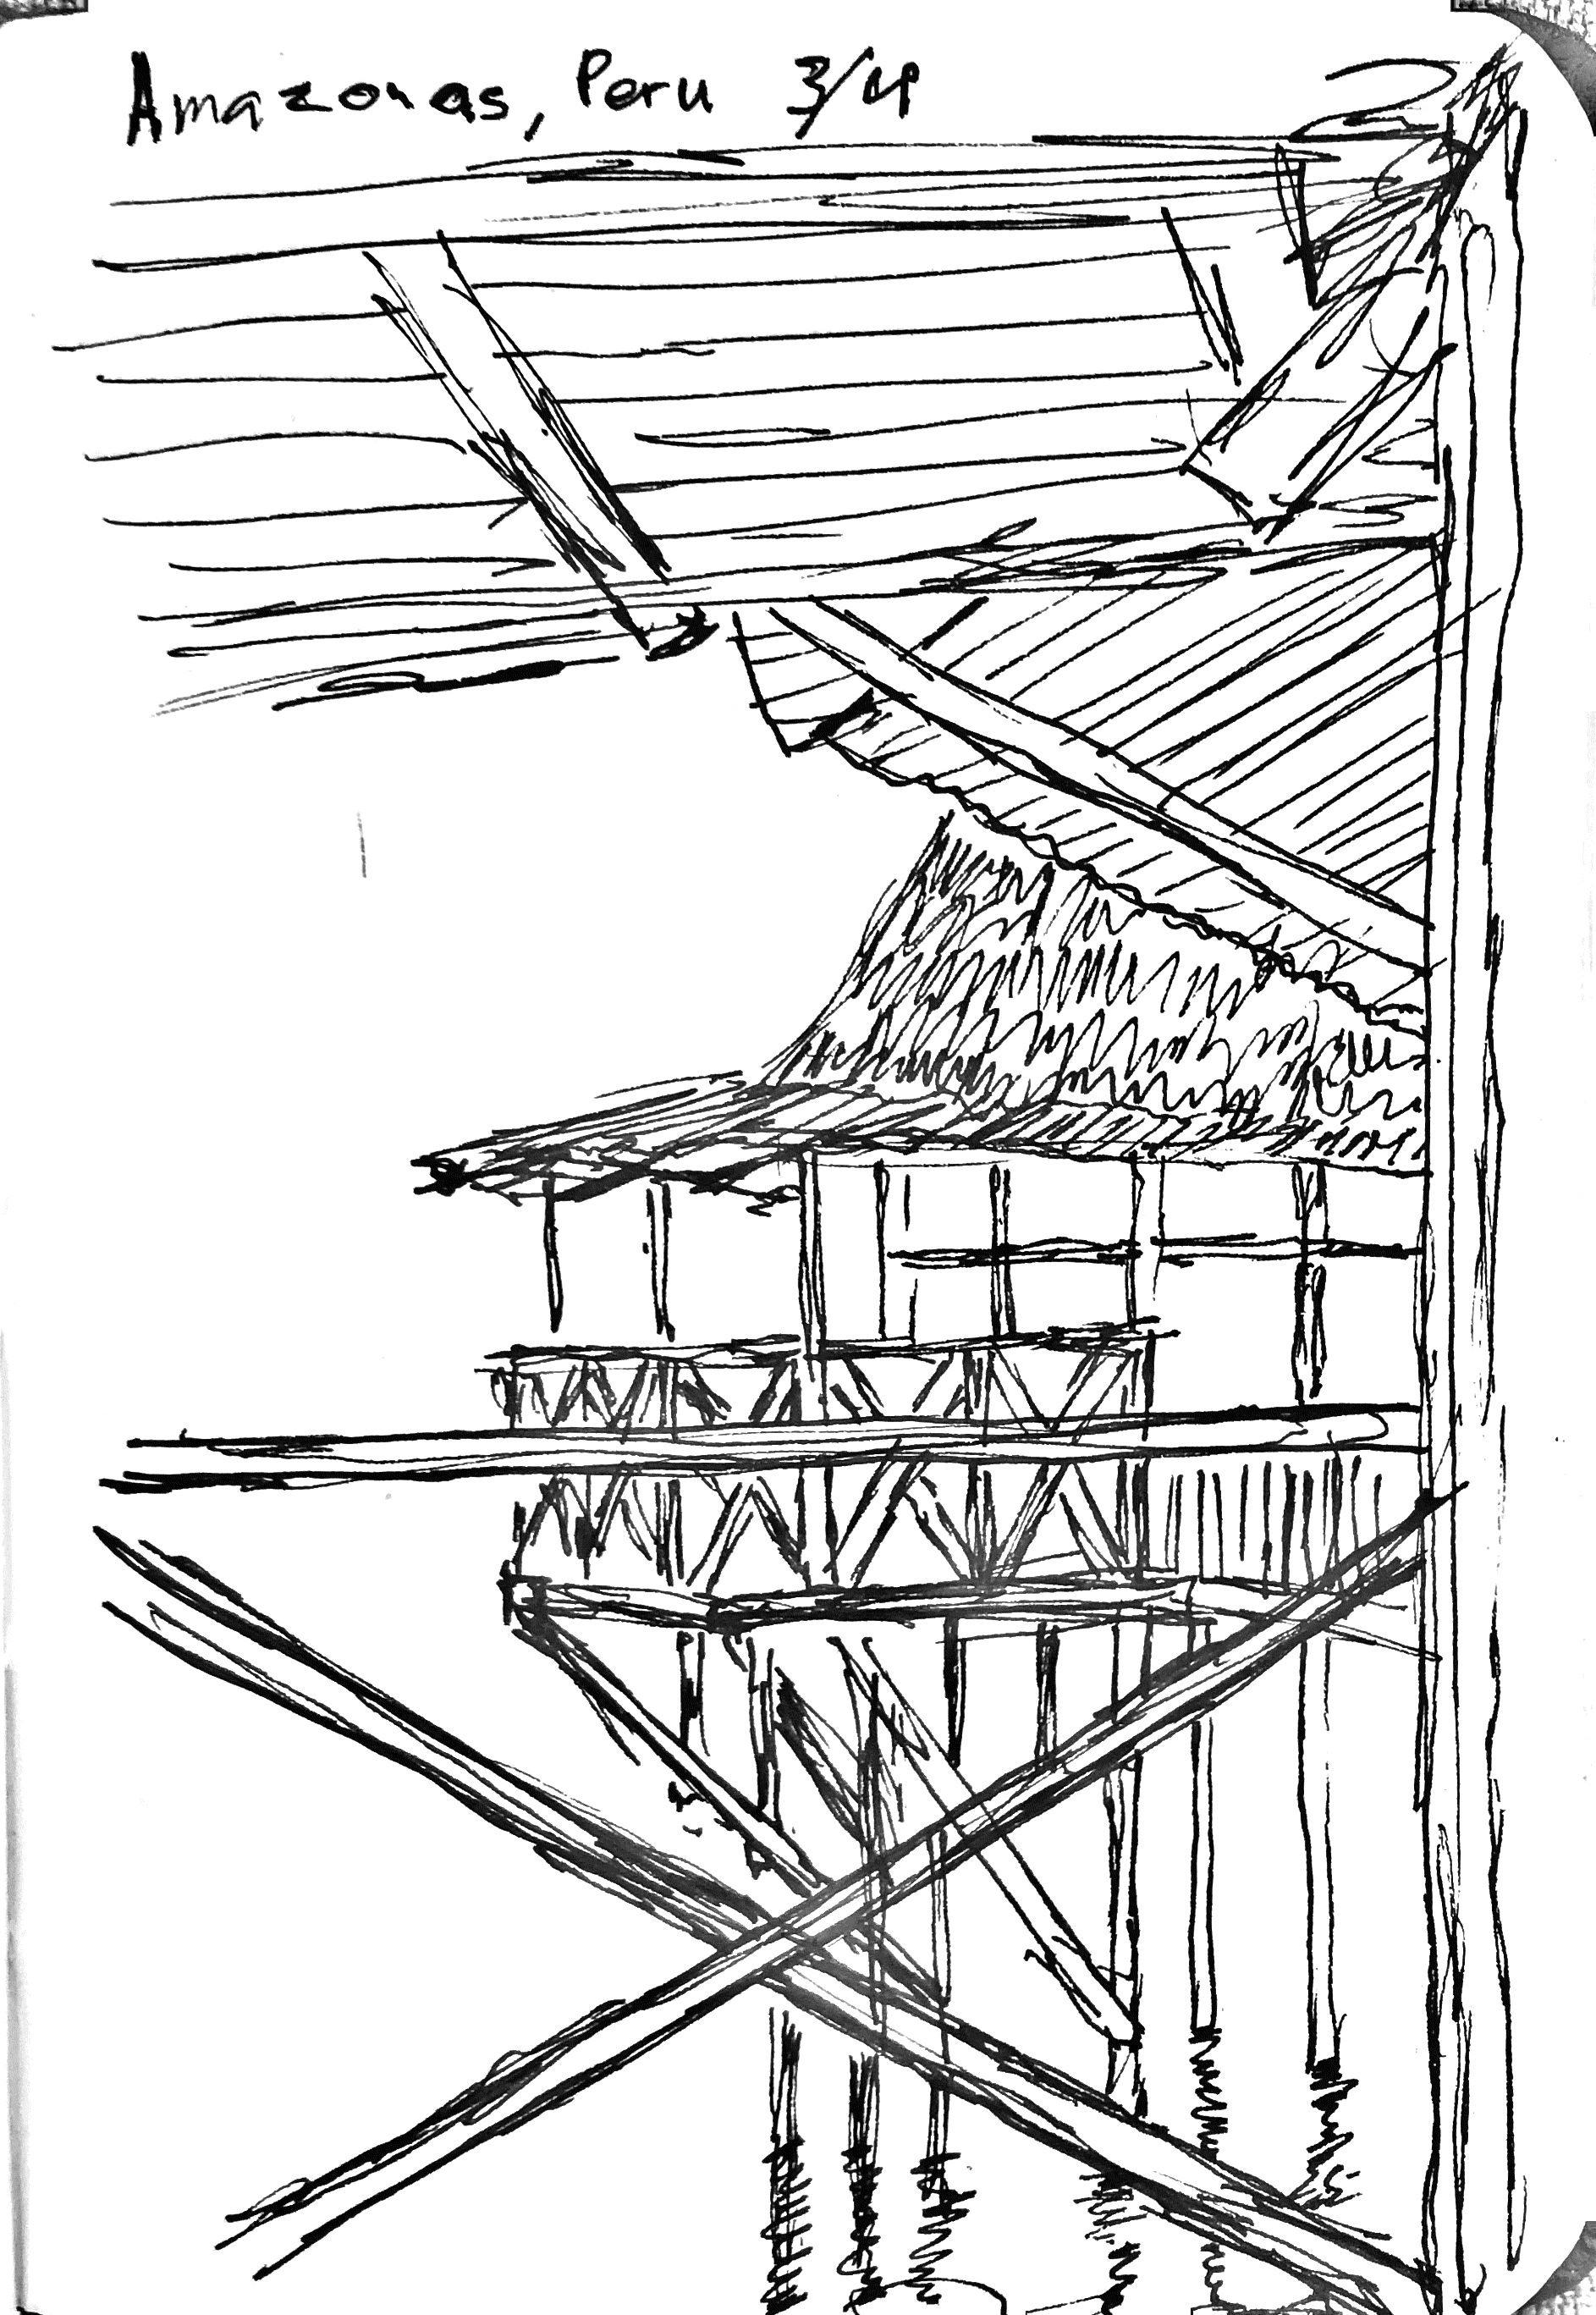 Amazonas, Peru 3/4